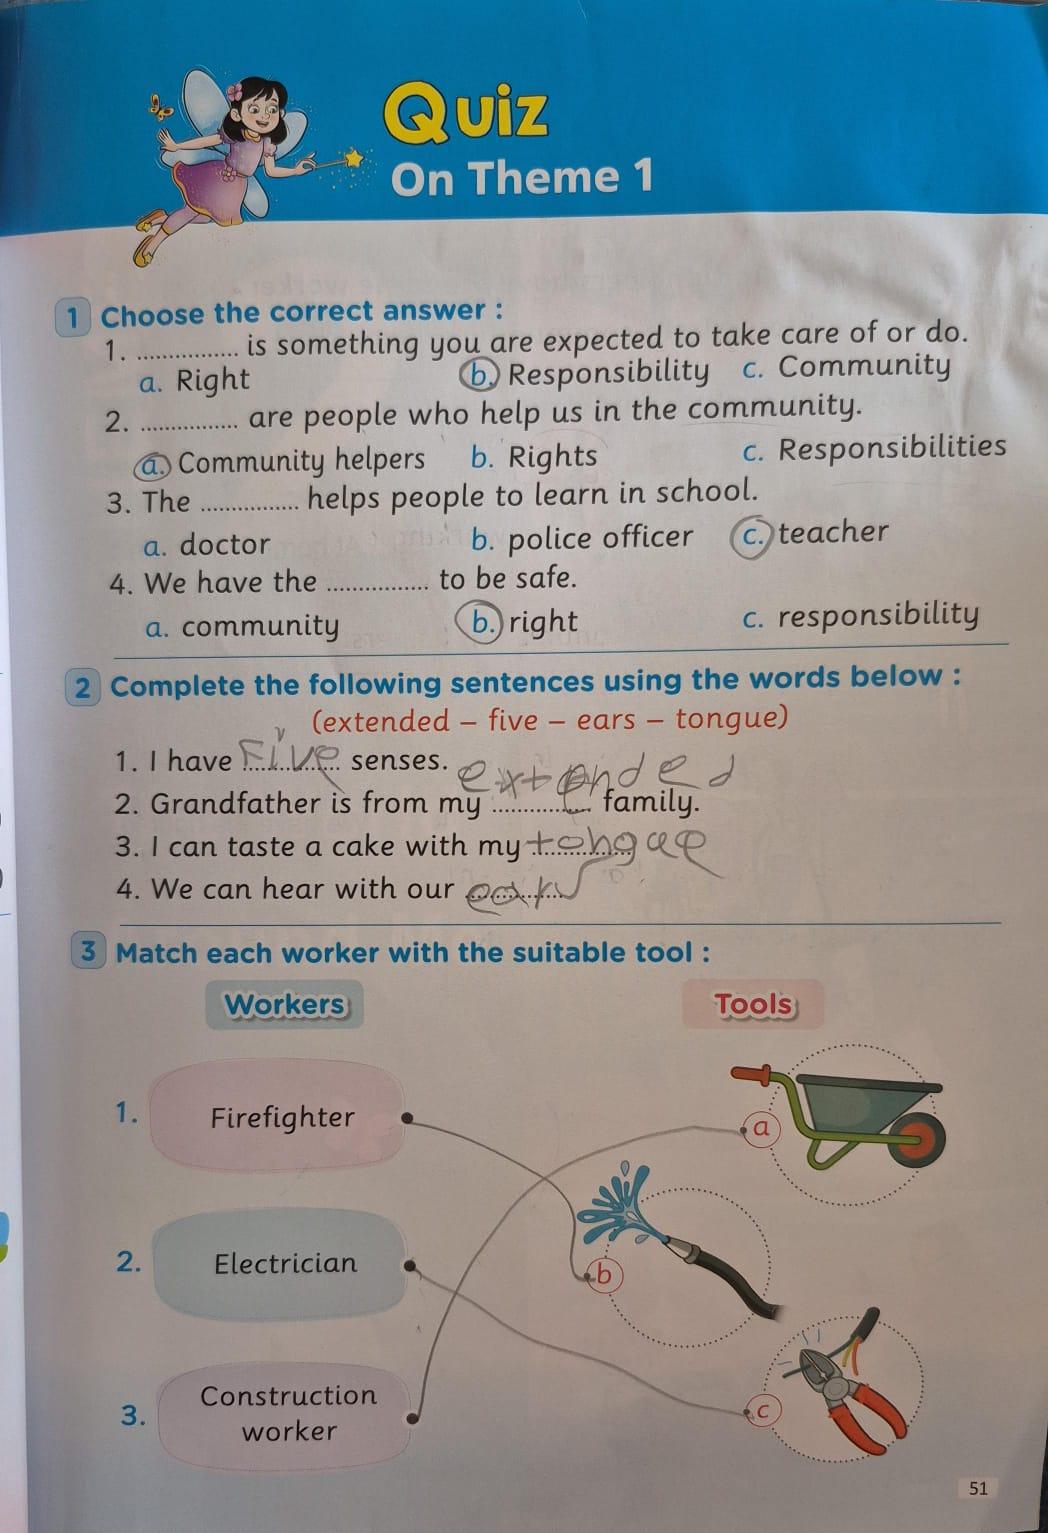 Quiz
On Theme 1
1 Choose the correct answer :
1. ................ is something you are expected to take care of or do.
a. Right b. Responsibility c. Community
2. ................ are people who help us in the community.
a. Community helpers b. Rights c. Responsibilities
3. The ................ helps people to learn in school.
a. doctor b. police officer c. teacher
4. We have the ................ to be safe.
a. community b. right c. responsibility
2 Complete the following sentences using the words below :
(extended – five – ears – tongue)
1. I have Five senses.
2. Grandfather is from my extended family.
3. I can taste a cake with my tongue
4. We can hear with our ears
3 Match each worker with the suitable tool :
Workers Tools
1. Firefighter
a
2. Electrician
b
3. Construction worker
c
51